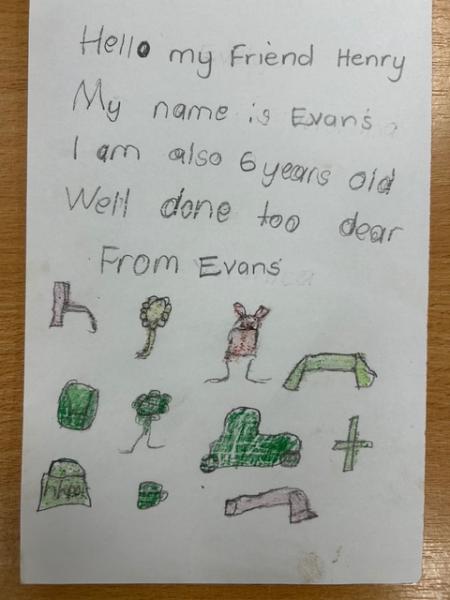 Hello my Friend Henry
My name is Evans
I am also 6 years old
Well done too dear
From Evans